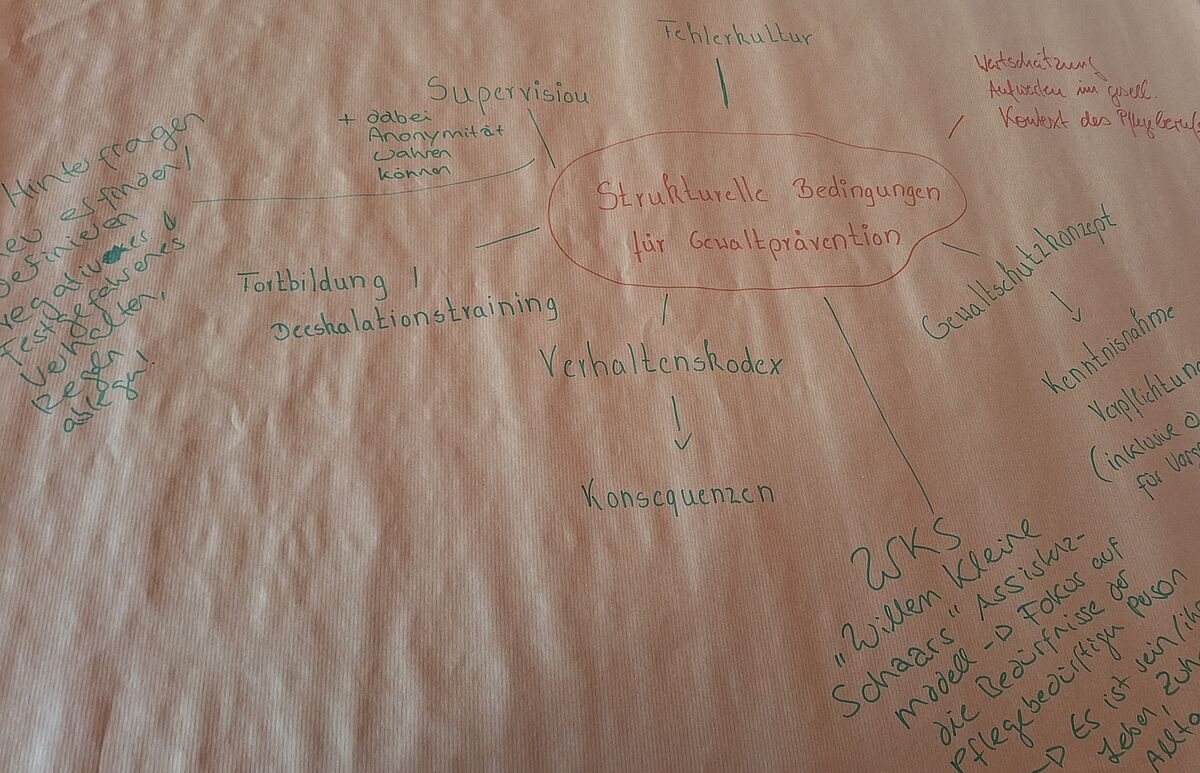 Fehlerkultur
Wertschätzung
Aufwerten im gesell.
Kontext des Pflegeberuf
Supervision
+ dabei
Anonymität
wahren
können
Hinterfragen
neu erfinden!
Definieren
negatives &
Festgefahrenes
Verhalten,
Regeln
ablegen!
Strukturelle Bedingungen
für Gewaltprävention
Fortbildung /
Deeskalationstraining
Verhaltenskodex
Konsequenzen
Gewaltschutzkonzept
Kenntnisnahme
Verpflichtung
(inklusive
für
WKS
"Willem Kleine
Schaars" Assistenz-
modell → Fokus auf
die Bedürfnisse der
pflegebedürftigen Person
→ Es ist sein/ih
Leben, Zuh
Allta